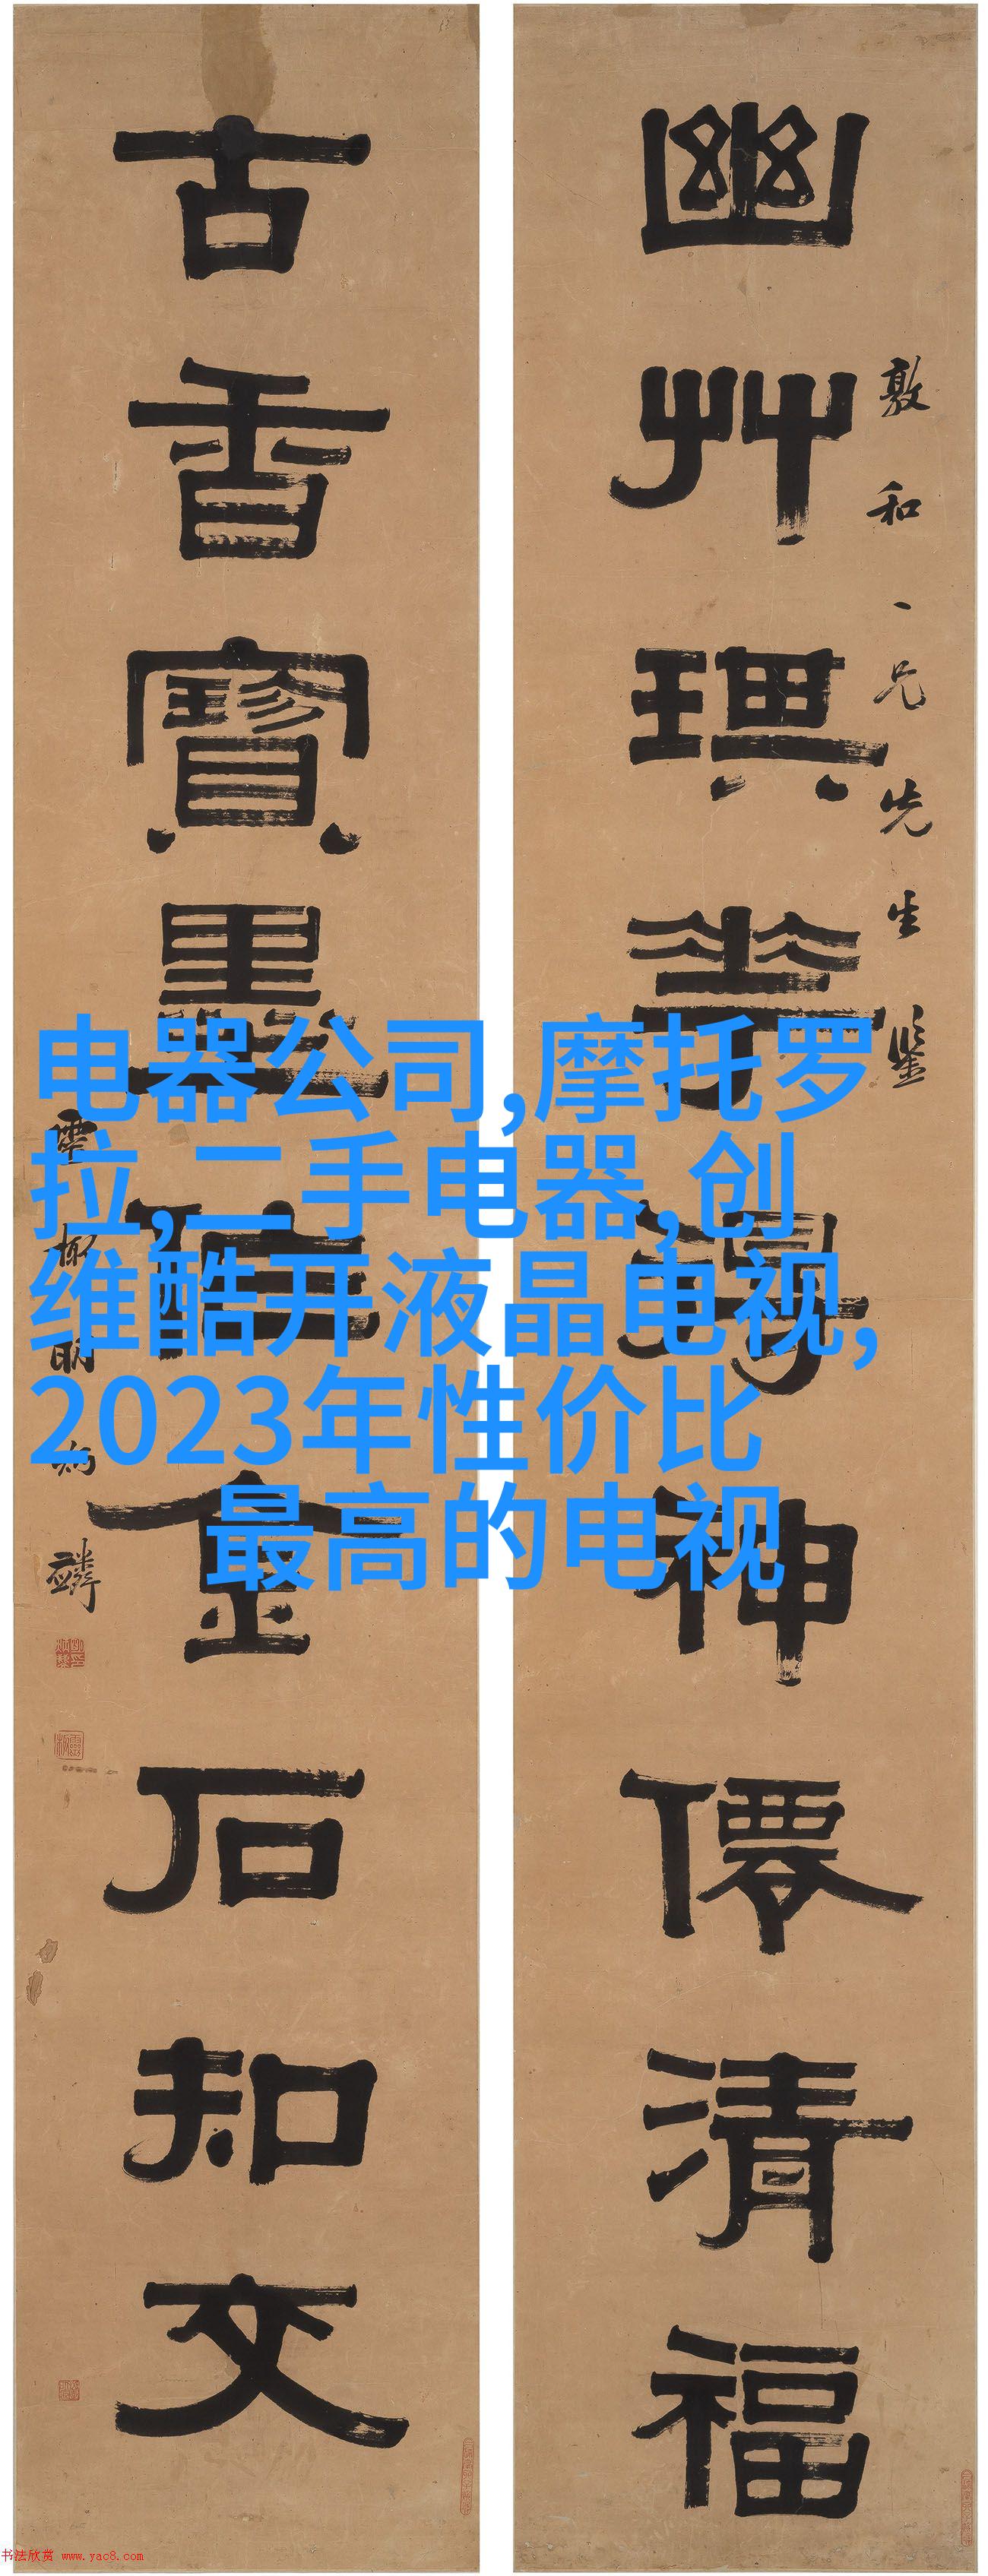 幽艸琪
神僊清福
敦和一兄先生鑒
古香寶墨
金石知交
明炳麟
电器公司,摩托罗
拉,二手电器,创
维酷开液晶电视,
2023年性价比
最高的电视
书法欣赏 www.yac8.com